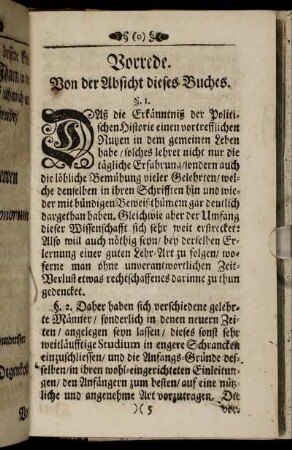 § (o) §
Vorrede.
Von der Absicht dieses Buches.
§. 1.
DAß die Erkänntniß der Politi-
schen Historie einen vortrefflichen
Nutzen in dem gemeinen Leben
habe / solches lehret nicht nur die
tägliche Erfahrung / sondern auch
die löbliche Bemühung vieler Gelehrten / wel-
che denselben in ihren Schrifften hin und wie-
der mit bündigen Beweißthümern gar deutlich
dargethan haben. Gleichwie aber der Umfang
dieser Wissenschafft sich sehr weit erstrecket:
Also will auch nöthig seyn / bey derselben Er-
lernung einer guten Lehr-Art zu folgen / wo-
ferne man ohne unverantwortlichen Zeit-
Verlust etwas rechtschaffenes darinne zu thun
gedencket.
§. 2. Daher haben sich verschiedene gelehr-
te Männer / sonderlich in denen neuern Zei-
ten / angelegen seyn lassen / dieses sonst sehr
weitläufftige Studium in engere Schrancken
einzuschliessen / und die Anfangs-Gründe des-
selben / in ihren wohl-eingerichteten Einleitun-
gen / den Anfängern zum besten / auf eine nütz-
liche und angenehme Art vorzutragen. Die
)( 5 vor-